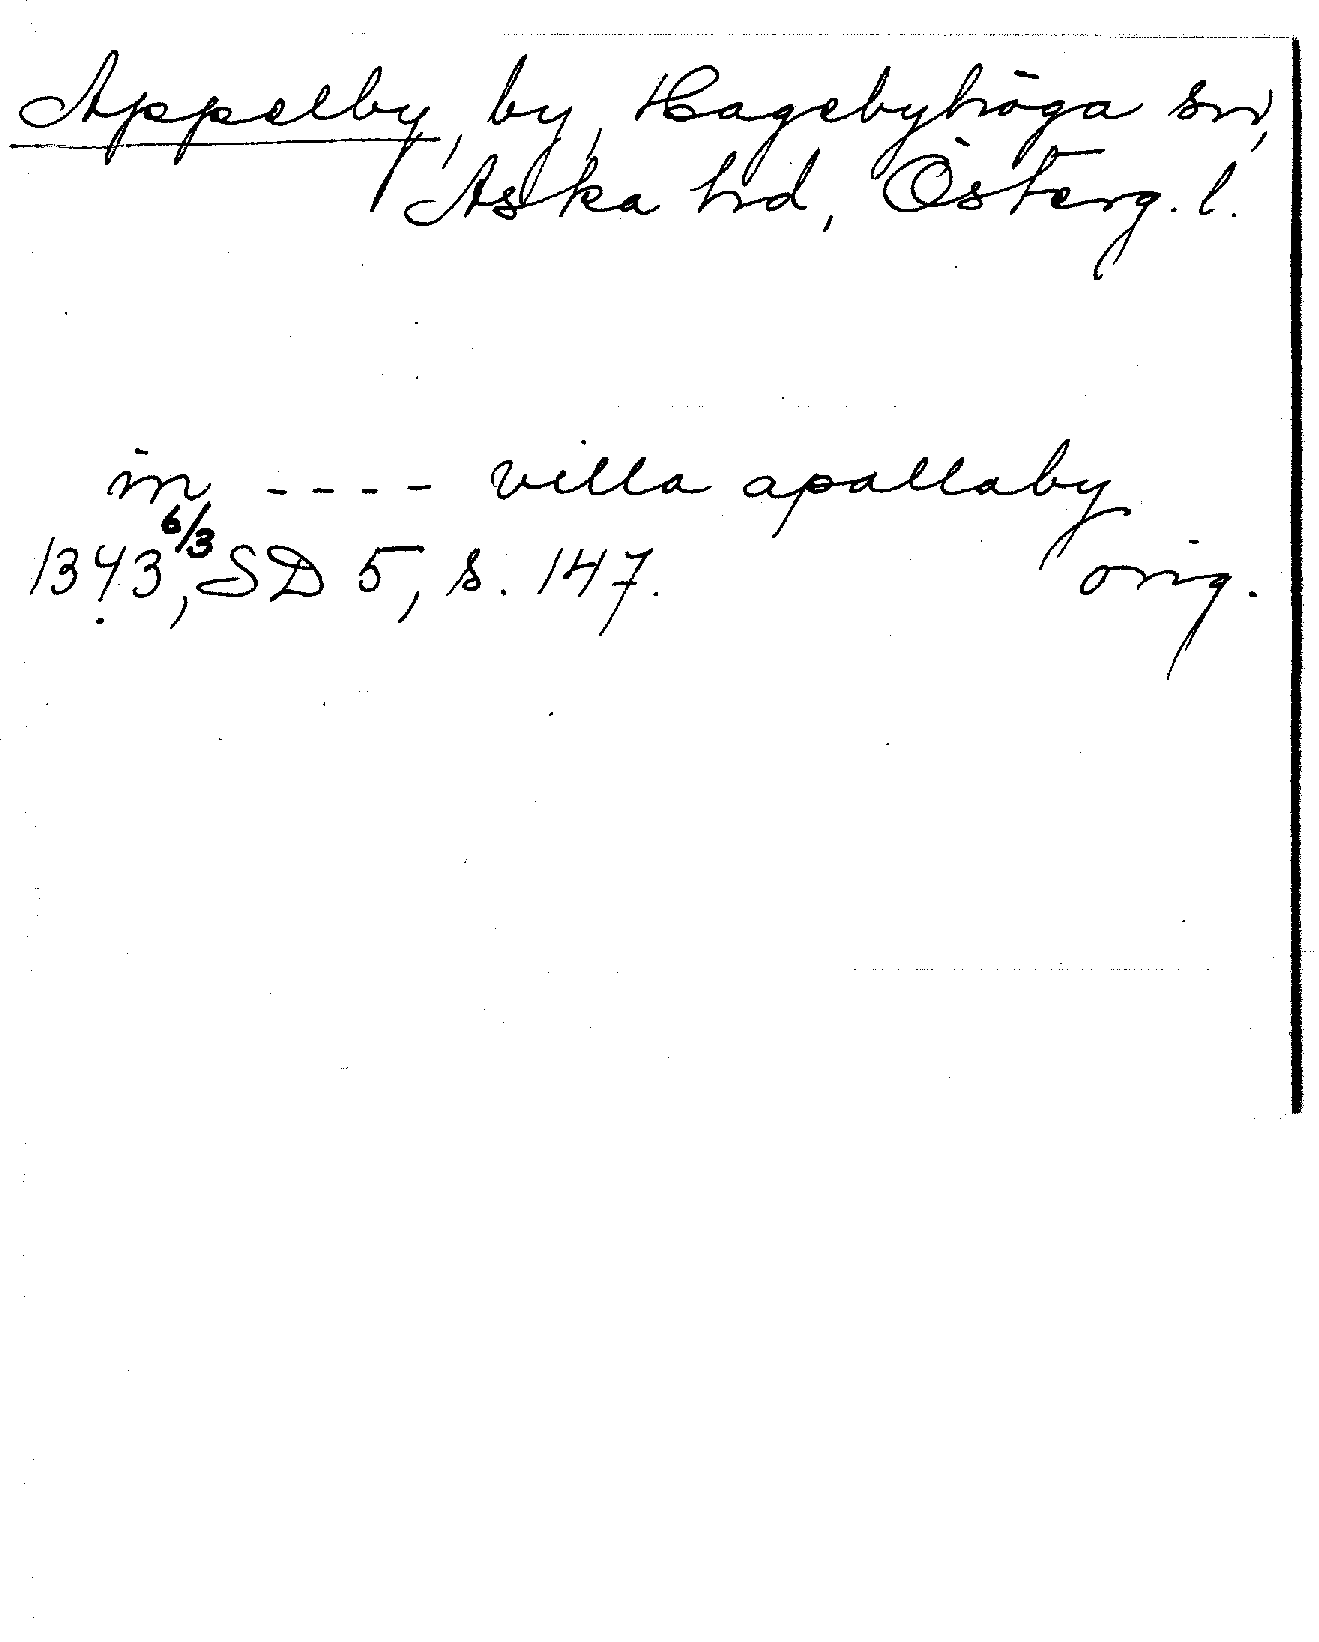 Appelby, by, Hagebyhöga sn,
Aska hd, Österg. l.
in ---- villa apallaby
1343 6/3, SD 5, s. 147. orig.